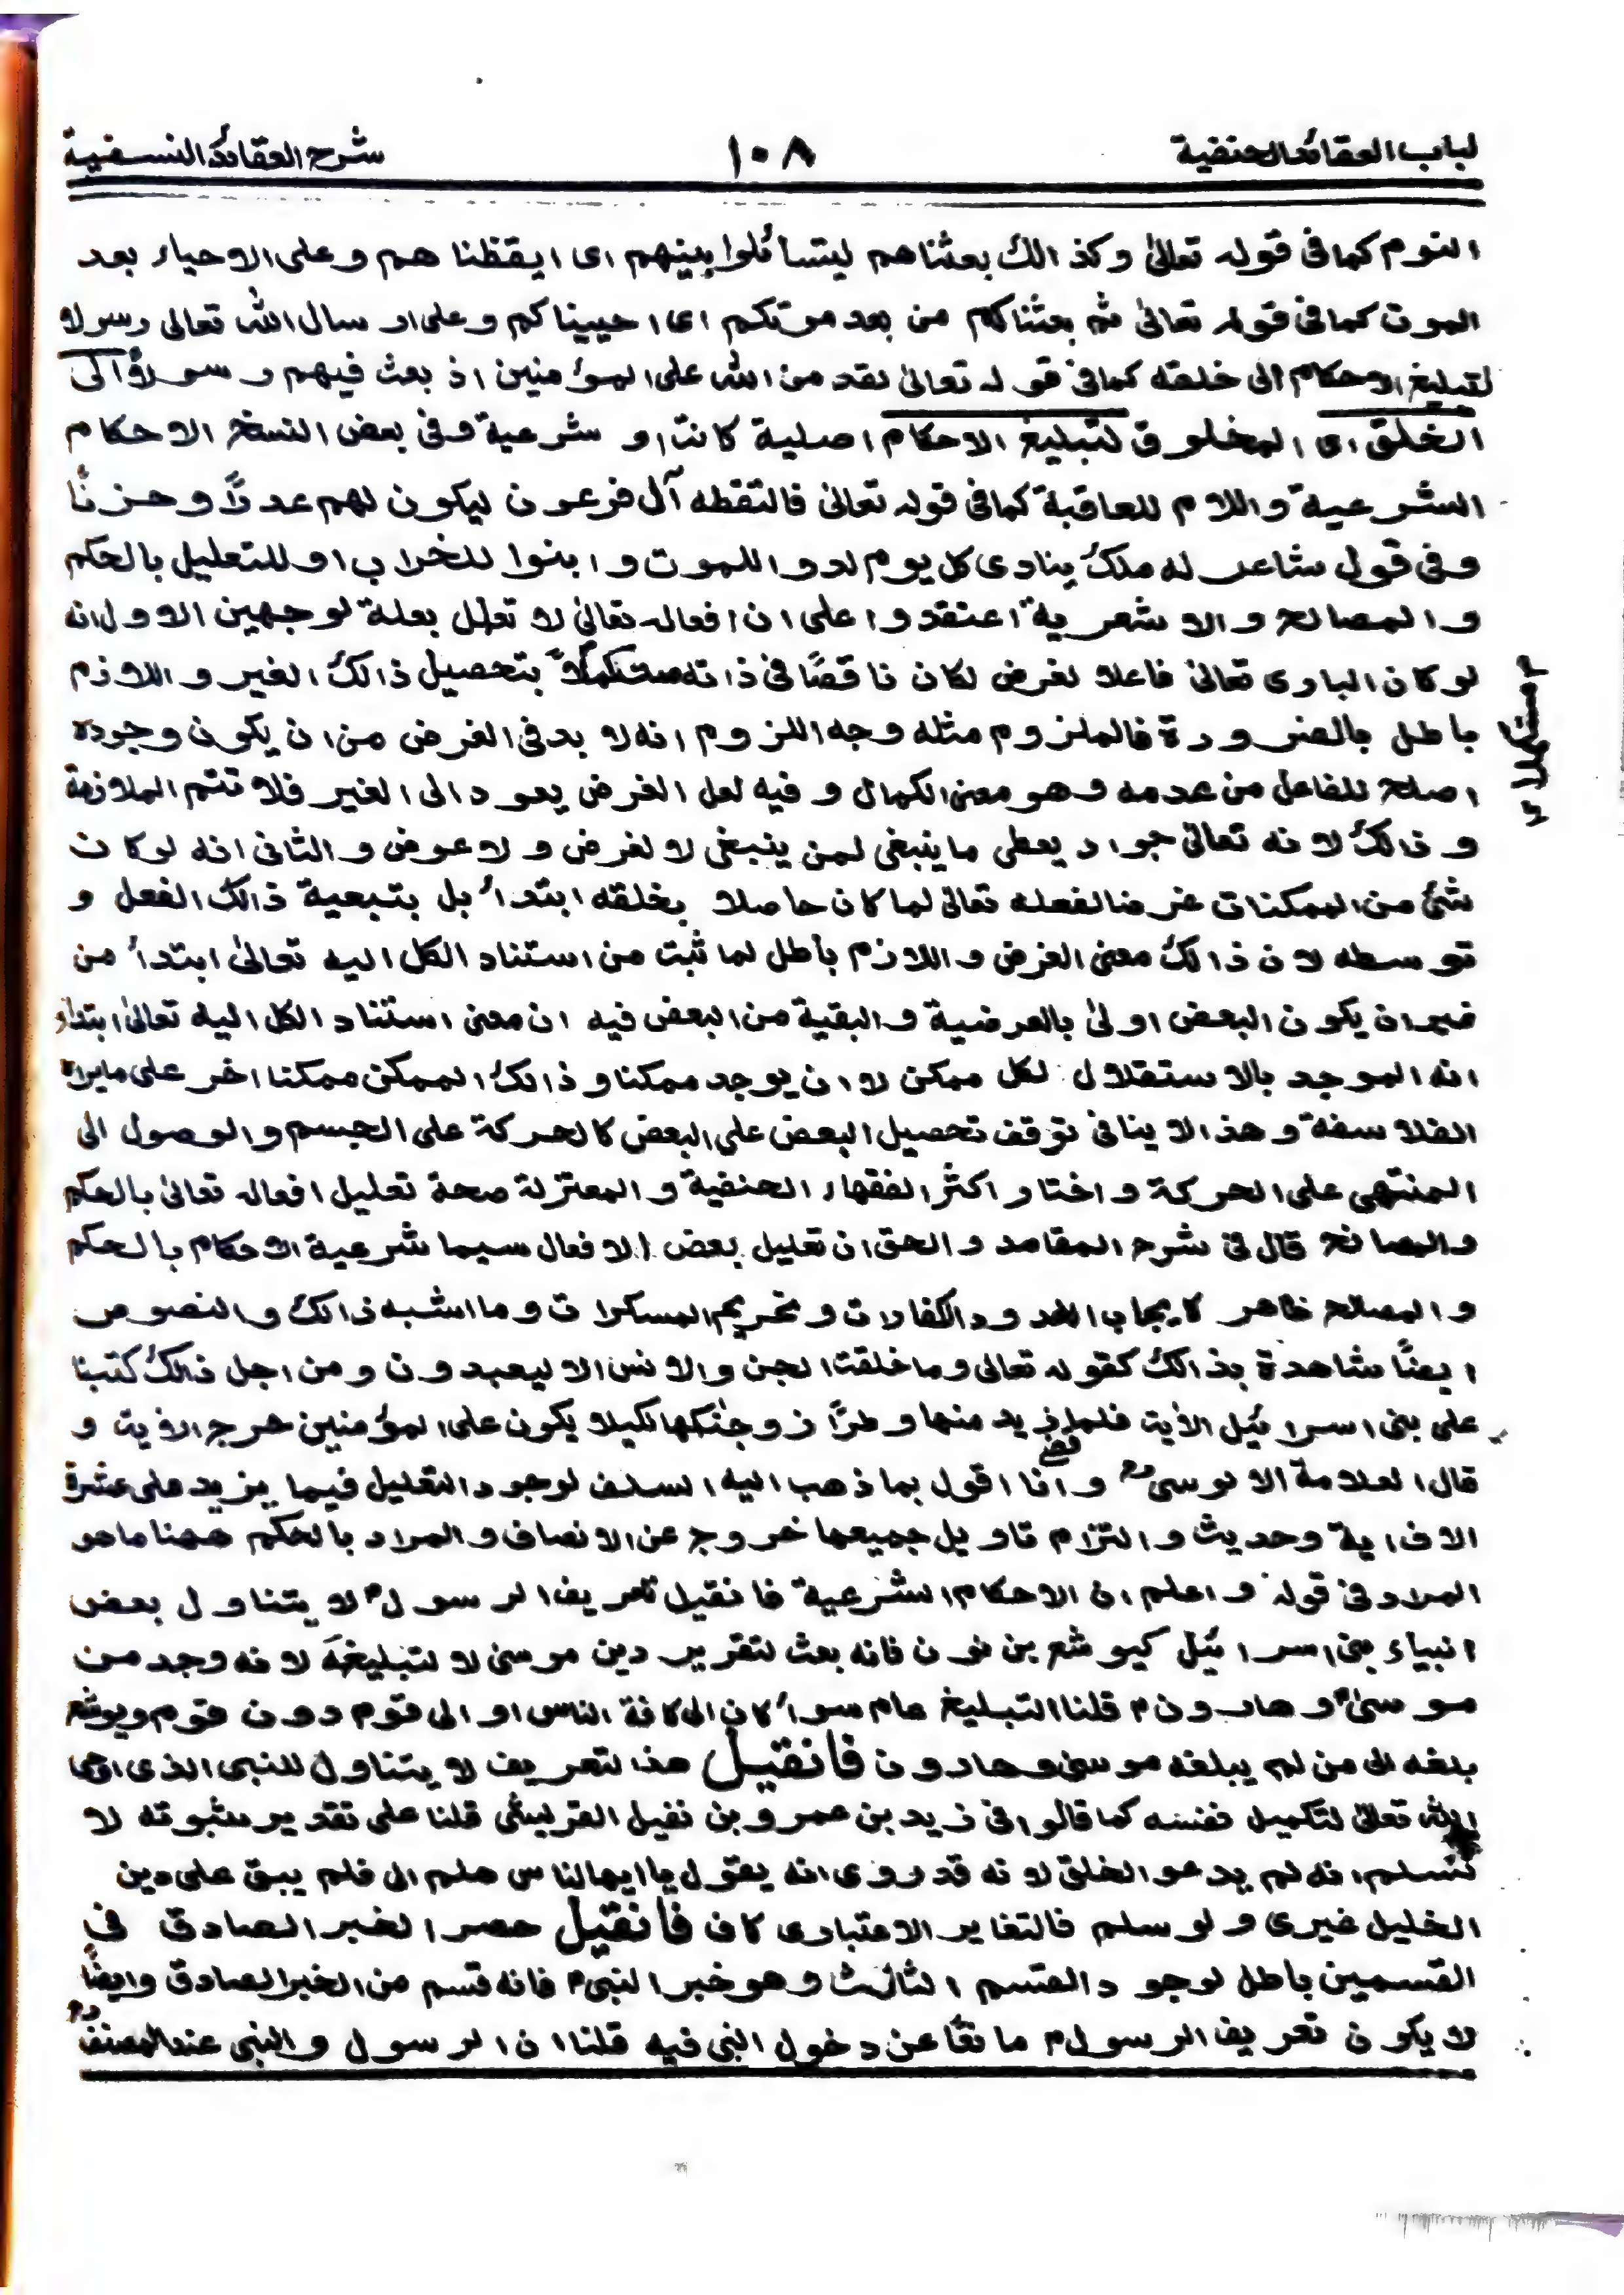 لباب العقائد الحنفية ١٠٨ شرح العقائد النسفية
النوم كما فى قوله تعالىٰ وكذالك بعثناهم ليتسأئلوا بينهم اى ايقظناهم وعلى الاحياء بعد
الموت كما فى قوله تعالىٰ ثم بعثناكم من بعد موتكم اى احييناكم وعلى ارسال الله تعالى رسولا
لتبليغ الاحكام الى خلقه كما فى قوله تعالىٰ لقد من الله على المؤمنين اذ بعث فيهم رسولاً الى
الخلق اى المخلوق لتبليغ الاحكام اصلية كانت او شرعية وفى بعض النسخ الاحكام
الشرعية واللام للعاقبة كما فى قوله تعالىٰ فالتقطه آل فرعون ليكون لهم عدوًّا وحزنًا
وفى قول شاعر له ملك ينادى كل يوم لدوا للموت وابنوا للخراب او للتعليل بالحكم
والمصالح والاشعرية اعتقدوا على ان افعاله تعالىٰ لا تعلل بعلة لوجهين الاول انه
لو كان البارى تعالىٰ فاعلا لغرض لكان ناقصًا فى ذاته مستكملاً بتحصيل ذالك الغير واللازم
باطل بالضرورة فالملزوم مثله وجه اللزوم انه لا بد فى الغرض من ان يكون وجوده
اصلح للفاعل من عدمه وهو معنى الكمال وفيه لعل الغرض يعود الى الغير فلا تتم الملازمة
وذالك لانه تعالىٰ جواد يعطى ما ينبغى لمن ينبغى لا لغرض ولا عوض والثانى انه لو كان
شئ من الممكنات غرضا لفعله تعالىٰ لما كان حاصلا بخلقه ابتدأً بل بتبعية ذالك الفعل و
توسطه لان ذالك معنى الغرض واللازم باطل لما ثبت من استناد الكل اليه تعالىٰ ابتدأً من
غير ان يكون البعض اولىٰ بالعرضية والبقية من البعض فيه ان معنى استناد الكل اليه تعالىٰ ابتداء
انه الموجد بالاستقلال لكل ممكن لا ان يوجد ممكنا وذالك الممكن ممكنا اخر على ما يراه
الفلاسفة وهذا لا ينافى توقف تحصيل البعض على البعض كالحركة على الجسم والوصول الى
المنتهى على الحركة واختار اكثر الفقهاء الحنفية والمعتزلة صحة تعليل افعاله تعالىٰ بالحكم
والمصالح قال فى شرح المقاصد والحق ان تعليل بعض الافعال سيما شرعية الاحكام بالحكم
والمصالح ظاهر كايجاب الحدود والكفارات وتحريم المسكرات وما اشبه ذالك والنصوص
ايضًا شاهدة بذالك كقوله تعالى وما خلقت الجن والانس الا ليعبدون ومن اجل ذالك كتبنا
على بنى اسرائيل الأية فلما قضى زيد منها وطرًا زوجنٰكها لكيلا يكون على المؤمنين حرج الأية و
قال العلامة الالوسى رح وانا اقول بما ذهب اليه السلف لوجود التعليل فيما يزيد على عشرة
الاف اية وحديث والتزام تاويل جميعها خروج عن الانصاف والمراد بالحكم ههنا ما هو
المراد فى قوله واعلم ان الاحكام الشرعية فانقيل تعريف الرسول لا يتناول بعض
انبياء بنى اسرائيل كيوشع بن نون فانه بعث لتقرير دين موسىٰ لا لتبليغه لانه وجد من
موسىٰ وهارون قلنا التبليغ عام سوأً كان الى كافة الناس او الى قوم دون قوم ويوشع
بلغه الى من لم يبلغه موسىٰ وهارون فانقيل هذا التعريف لا يتناول للنبى الذى اوحى
الله تعالىٰ لتكميل نفسه كما قالوا فى زيد بن عمرو بن نفيل القريشى قلنا على تقدير ثبوته لا
نسلم انه لم يدعو الخلق لانه قد روى انه يقول يا ايها الناس هلم الى فلم يبق على دين
الخليل غيرى ولو سلم فالتغاير الاعتبارى كاف فانقيل حصر الخبر الصادق فى
القسمين باطل لوجود القسم الثالث وهو خبر النبى فانه قسم من الخبر الصادق وايضًا
لا يكون تعريف الرسول مانعًا عن دخول النبى فيه قلنا ان الرسول والنبى عند المصنف رح